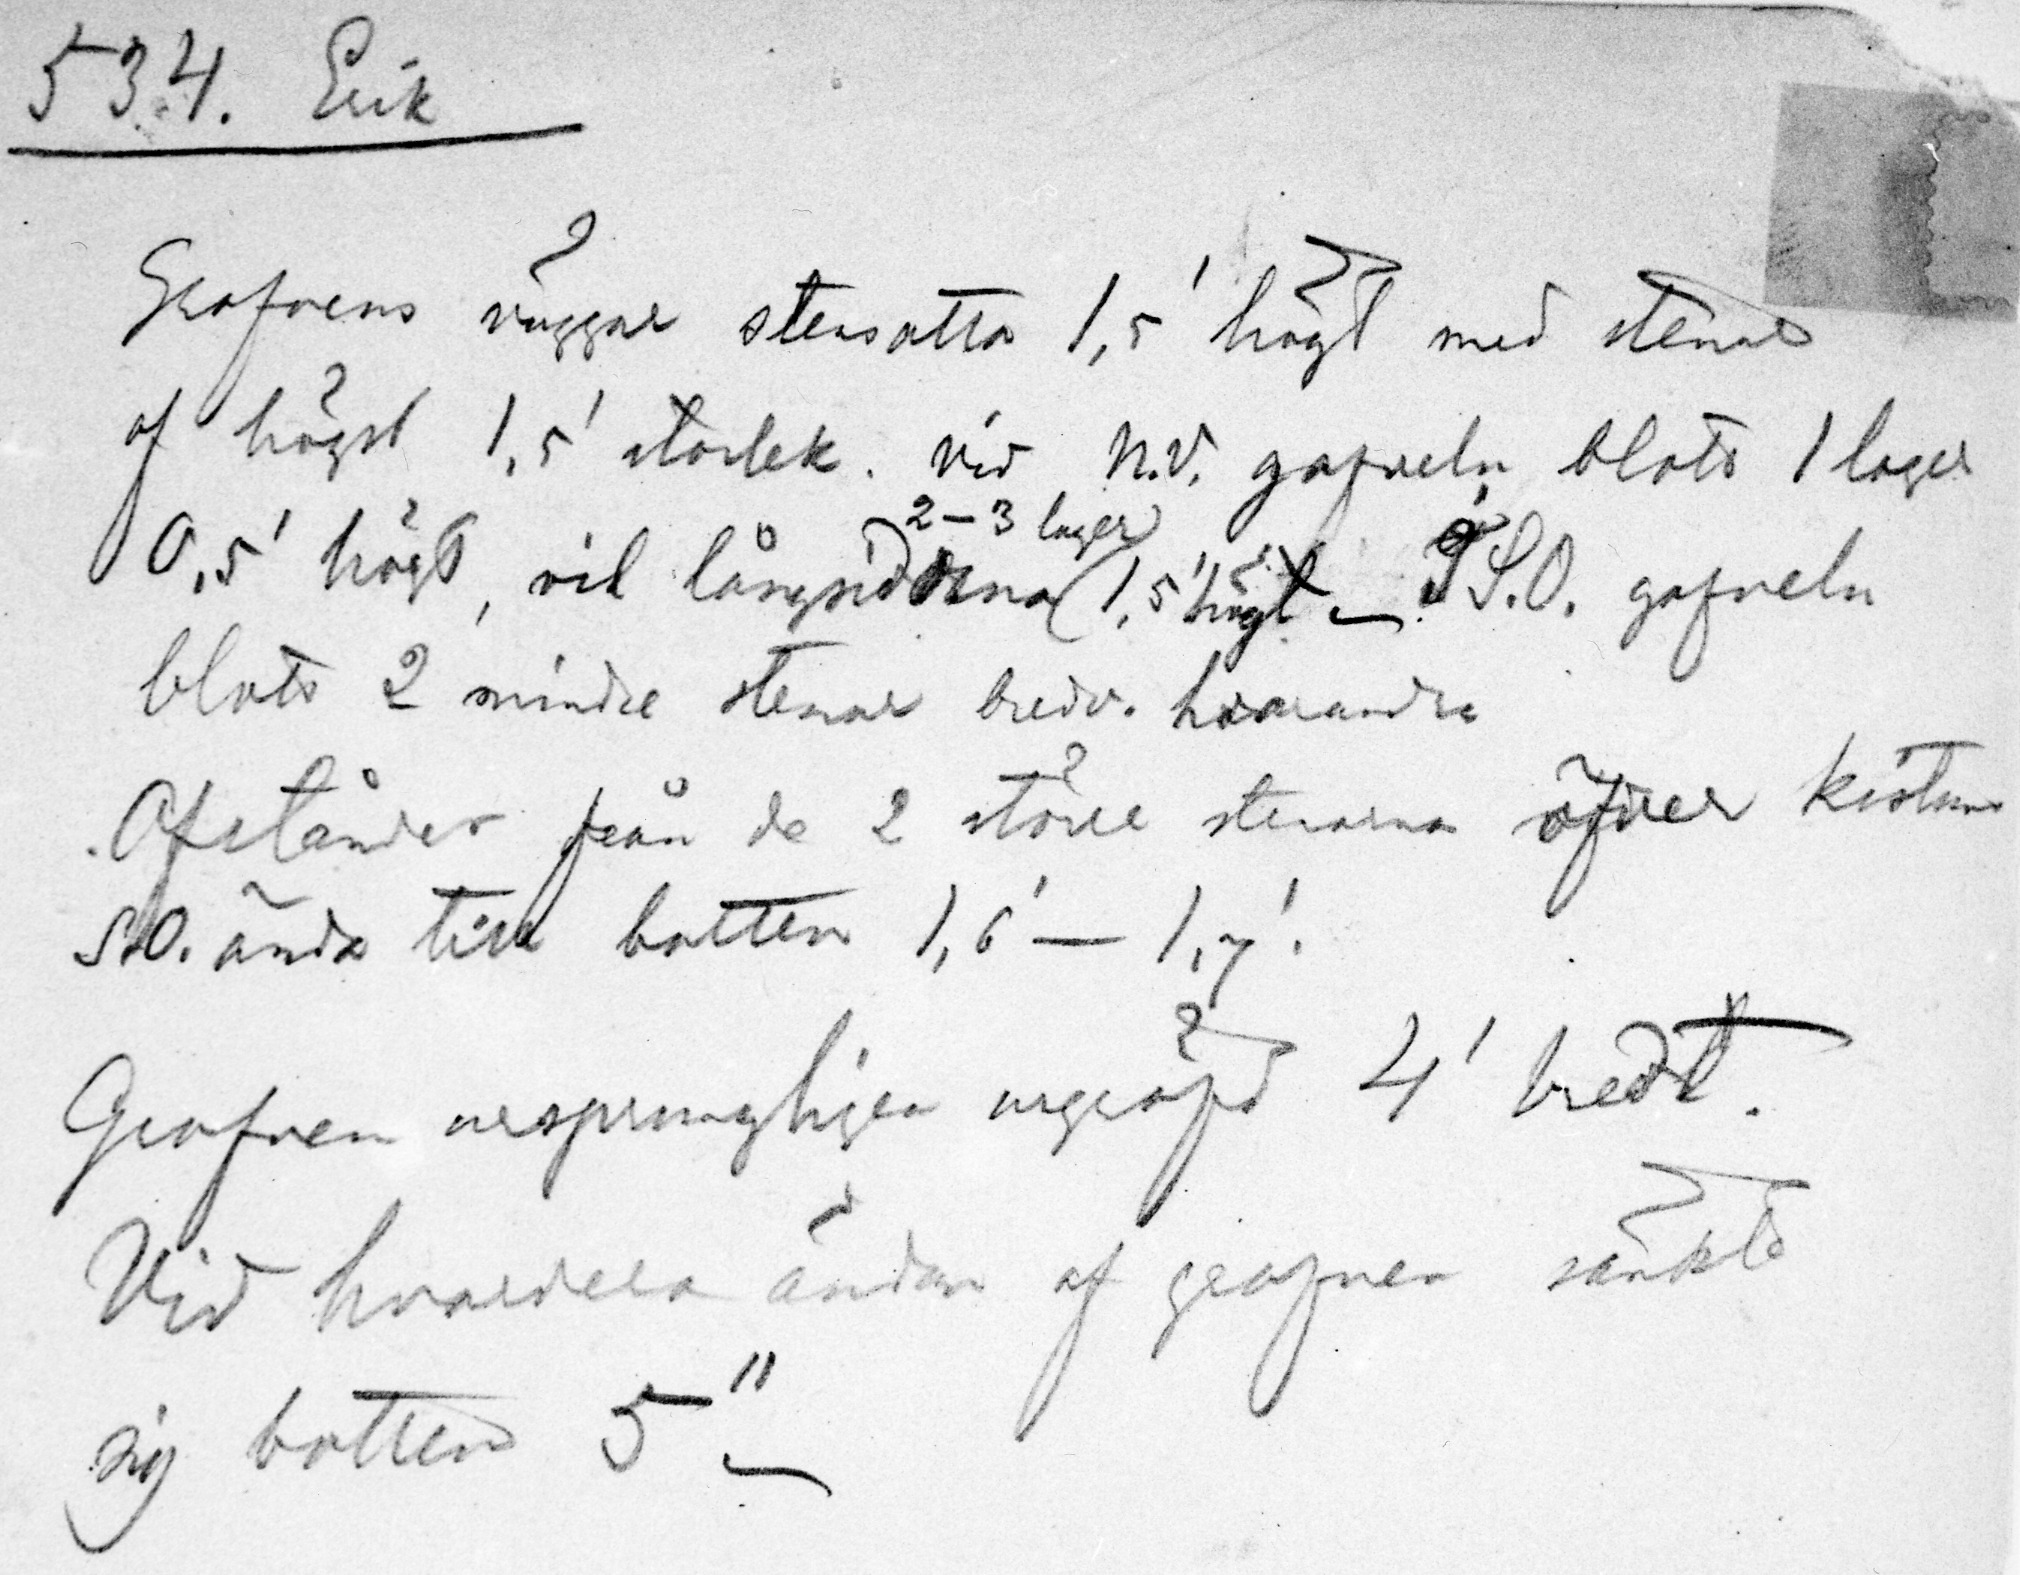 534. Erik
Grafvens väggar stensatta 1,5' högt med stenar
af högst 1,5' storlek. Vid N.V. gafveln blott 1 lager
0,5' högt, vid långsidorna 2–3 lager (1,5' högt – I S.O. gafveln
blott 2 mindre stenar bredv. hvarandra
Afståndet från de 2 större stenarna öfver kistans
S.O. ända till botten 1,6' — 1,7'.
Grafven ursprungligen urgräfd 4' bredt.
Vid hvardera ändan af grafven sänkte
sig botten 5"